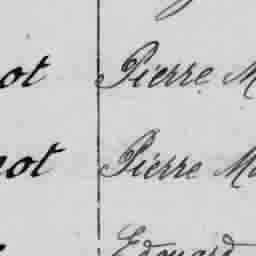 ot Pierre M
not Pierre Ma
Edouard